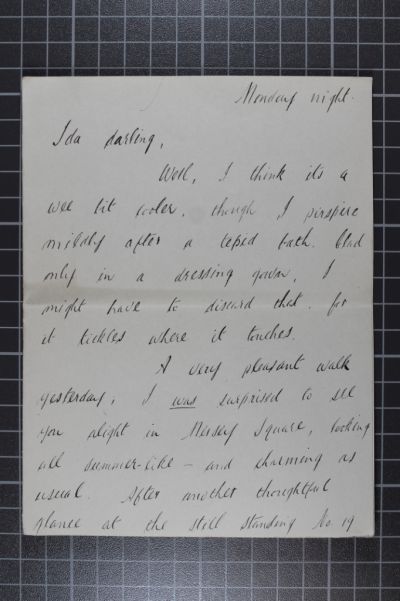 Monday night.
Ida darling,
Well, I think its a
wee bit cooler, though I perspire
mildly after a tepid bath. Clad
only in a dressing gown, I
might have to discard that, for
it tickles where it touches.
A very pleasant walk
yesterday; I was surprised to see
you alight in Mersey Square, looking
all summer-like – and charming as
usual. After another thoughtful
glance at the still standing No. 19